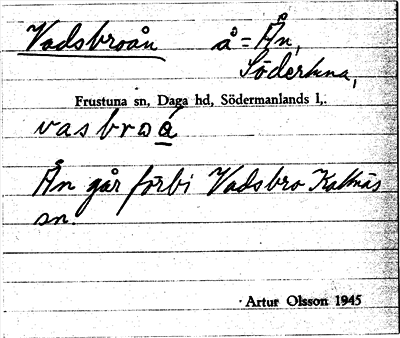 Vadsbroån å = Ån,
Södertuna,
Frustuna sn, Daga hd, Södermanlands l,.
vasbroå
Ån går förbi Vadsbro Kattnäs
sn.
Artur Olsson 1945